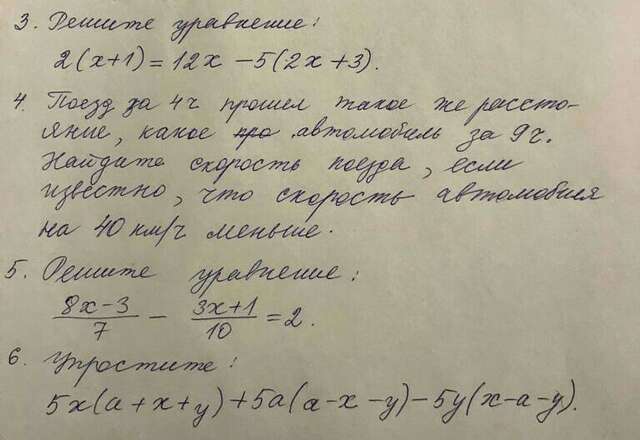 3. Решите уравнение:
2(x+1) = 12x - 5(2x+3).
4. Поезд за 4 ч прошел такое же рассто-
яние, какое автомобиль за 9 ч.
Найдите скорость поезда, если
известно, что скорость автомобиля
на 40 км/ч меньше.
5. Решите уравнение:
(8x-3)/7 - (3x+1)/10 = 2.
6. Упростите:
5x(a+x+y)+5a(a-x-y)-5y(x-a-y).